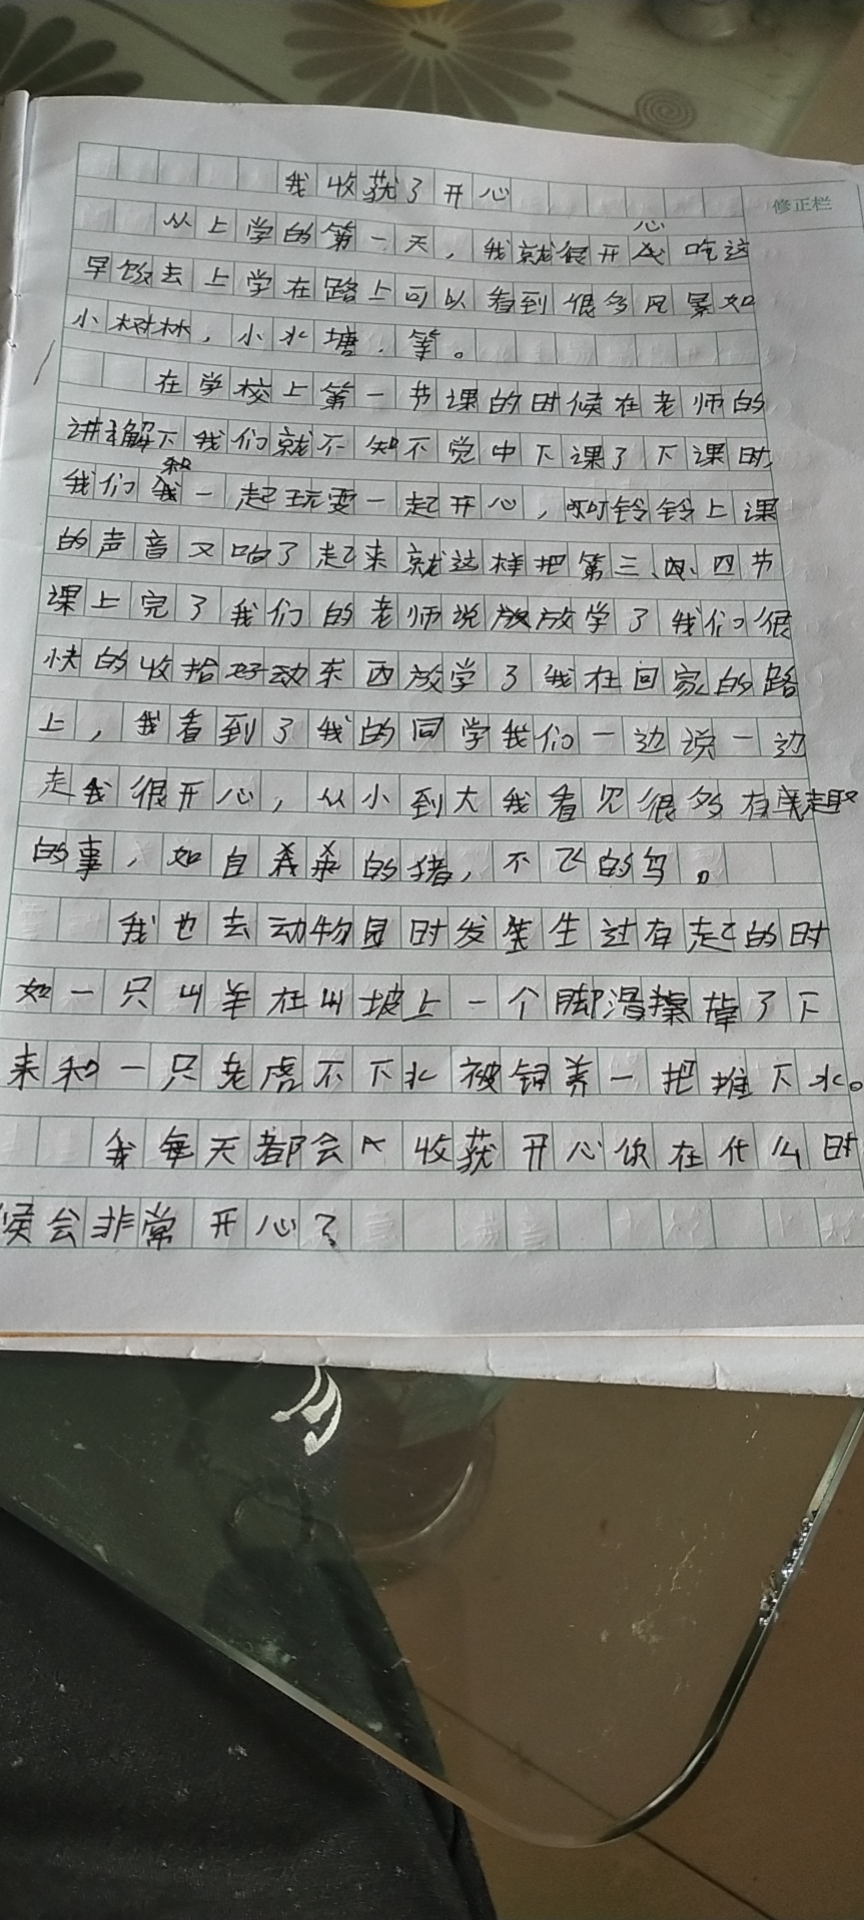 我收获了开心
修正栏
从上学的第一天，我就很开心吃这
早饭去上学在路上可以看到很多风景如
小树林，小水塘，等。
在学校上第一节课的时候在老师的
讲解下我们就不知不觉中下课了下课时，
我们和一起玩耍一起开心，叮铃铃上课
的声音又响了起来就这样把第三、四节
课上完了我们的老师说放学了我们很
快的收拾好东西放学了我在回家的路
上，我看到了我的同学我们一边说一边
走我很开心，从小到大我看见很多有趣
的事，如自的猪，不飞的鸟。
我也去动物园时发生过有起的时
如一只山羊在山坡上一个脚滑掉了下
来和一只老虎不下水被饲养一把推下水。
我每天都会收获开心你在什么时
候会非常开心？